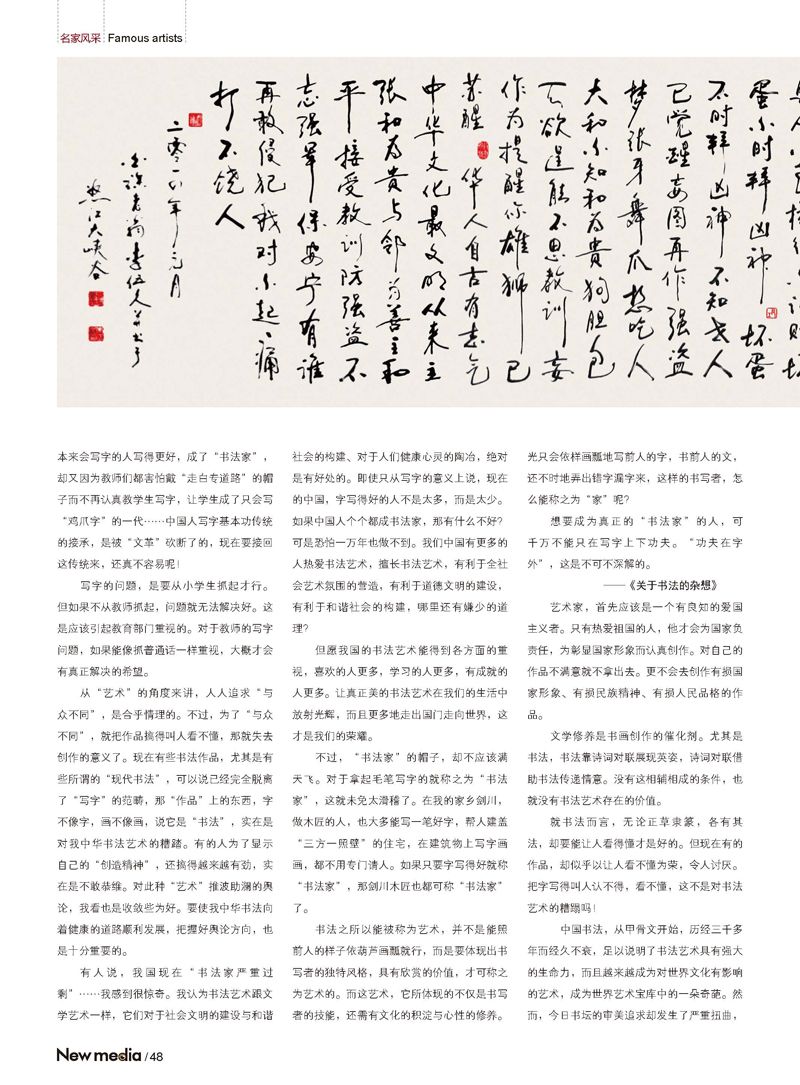 名家风采 Famous artists
蛋小时拜凶神 坏蛋
不时拜凶神不知
已觉醒妄图再作强盗
梦张牙舞爪想吃人
大和不知和为贵狗胆包
天欲逞能不思教训妄
作为提醒你雄狮已
苏醒 华人自古有志气
中华文化最文明从来主
张和为贵与邻为善主和
平 接受教训防强盗不
忘强军 保安宁有谁
再敢侵犯我对不起痛
打不饶人
二零一六年元月
怒江大峡谷
本来会写字的人写得更好，成了“书法家”，
却又因为教师们都害怕戴“走白专道路”的帽
子而不再认真教学生写字，让学生成了只会写
“鸡爪字”的一代……中国人写字基本功传统
的接承，是被“文革”砍断了的，现在要接回
这传统来，还真不容易呢！
写字的问题，是要从小学生抓起才行。
但如果不从教师抓起，问题就无法解决好。这
是应该引起教育部门重视的。对于教师的写字
问题，如果能像抓普通话一样重视，大概才会
有真正解决的希望。
从“艺术”的角度来讲，人人追求“与
众不同”，是合乎情理的。不过，为了“与众
不同”，就把作品搞得叫人看不懂，那就失去
创作的意义了。现在有些书法作品，尤其是有
些所谓的“现代书法”，可以说已经完全脱离
了“写字”的范畴，那“作品”上的东西，字
不像字，画不像画，说它是“书法”，实在是
对我中华书法艺术的糟踏。有的人为了显示
自己的“创造精神”，还搞得越来越有劲，实
在是不敢恭维。对此种“艺术”推波助澜的舆
论，我看也是收敛些为好。要使我中华书法向
着健康的道路顺利发展，把握好舆论方向，也
是十分重要的。
有人说，我国现在“书法家严重过
剩”……我感到很惊奇。我认为书法艺术跟文
学艺术一样，它们对于社会文明的建设与和谐
社会的构建、对于人们健康心灵的陶冶，绝对
是有好处的。即使只从写字的意义上说，现在
的中国，字写得好的人不是太多，而是太少。
如果中国人个个都成书法家，那有什么不好？
可是恐怕一万年也做不到。我们中国有更多的
人热爱书法艺术，擅长书法艺术，有利于全社
会艺术氛围的营造，有利于道德文明的建设，
有利于和谐社会的构建，哪里还有嫌少的道
理？
但愿我国的书法艺术能得到各方面的重
视，喜欢的人更多，学习的人更多，有成就的
人更多。让真正美的书法艺术在我们的生活中
放射光辉，而且更多地走出国门走向世界，这
才是我们的荣耀。
不过，“书法家”的帽子，却不应该满
天飞。对于拿起毛笔写字的就称之为“书法
家”，这就未免太滑稽了。在我的家乡剑川，
做木匠的人，也大多能写一笔好字，帮人建盖
“三方一照壁”的住宅，在建筑物上写字画
画，都不用专门请人。如果只要字写得好就称
“书法家”，那剑川木匠也都可称“书法家”
了。
书法之所以能被称为艺术，并不是能照
前人的样子依葫芦画瓢就行，而是要体现出书
写者的独特风格，具有欣赏的价值，才可称之
为艺术的。而这艺术，它所体现的不仅是书写
者的技能，还需有文化的积淀与心性的修养。
光只会依样画瓢地写前人的字，书前人的文，
还不时地弄出错字漏字来，这样的书写者，怎
么能称之为“家”呢？
想要成为真正的“书法家”的人，可
千万不能只在写字上下功夫。“功夫在字
外”，这是不可不深解的。
——《关于书法的杂想》
艺术家，首先应该是一个有良知的爱国
主义者。只有热爱祖国的人，他才会为国家负
责任，为彰显国家形象而认真创作。对自己的
作品不满意就不拿出去。更不会去创作有损国
家形象、有损民族精神、有损人民品格的作
品。
文学修养是书画创作的催化剂。尤其是
书法，书法靠诗词对联展现英姿，诗词对联借
助书法传递情意。没有这相辅相成的条件，也
就没有书法艺术存在的价值。
就书法而言，无论正草隶篆，各有其
法，却要能让人看得懂才是好的。但现在有的
作品，却似乎以让人看不懂为荣，令人讨厌。
把字写得叫人认不得，看不懂，这不是对书法
艺术的糟蹋吗！
中国书法，从甲骨文开始，历经三千多
年而经久不衰，足以说明了书法艺术具有强大
的生命力，而且越来越成为对世界文化有影响
的艺术，成为世界艺术宝库中的一朵奇葩。然
而，今日书坛的审美追求却发生了严重扭曲，
New media / 48